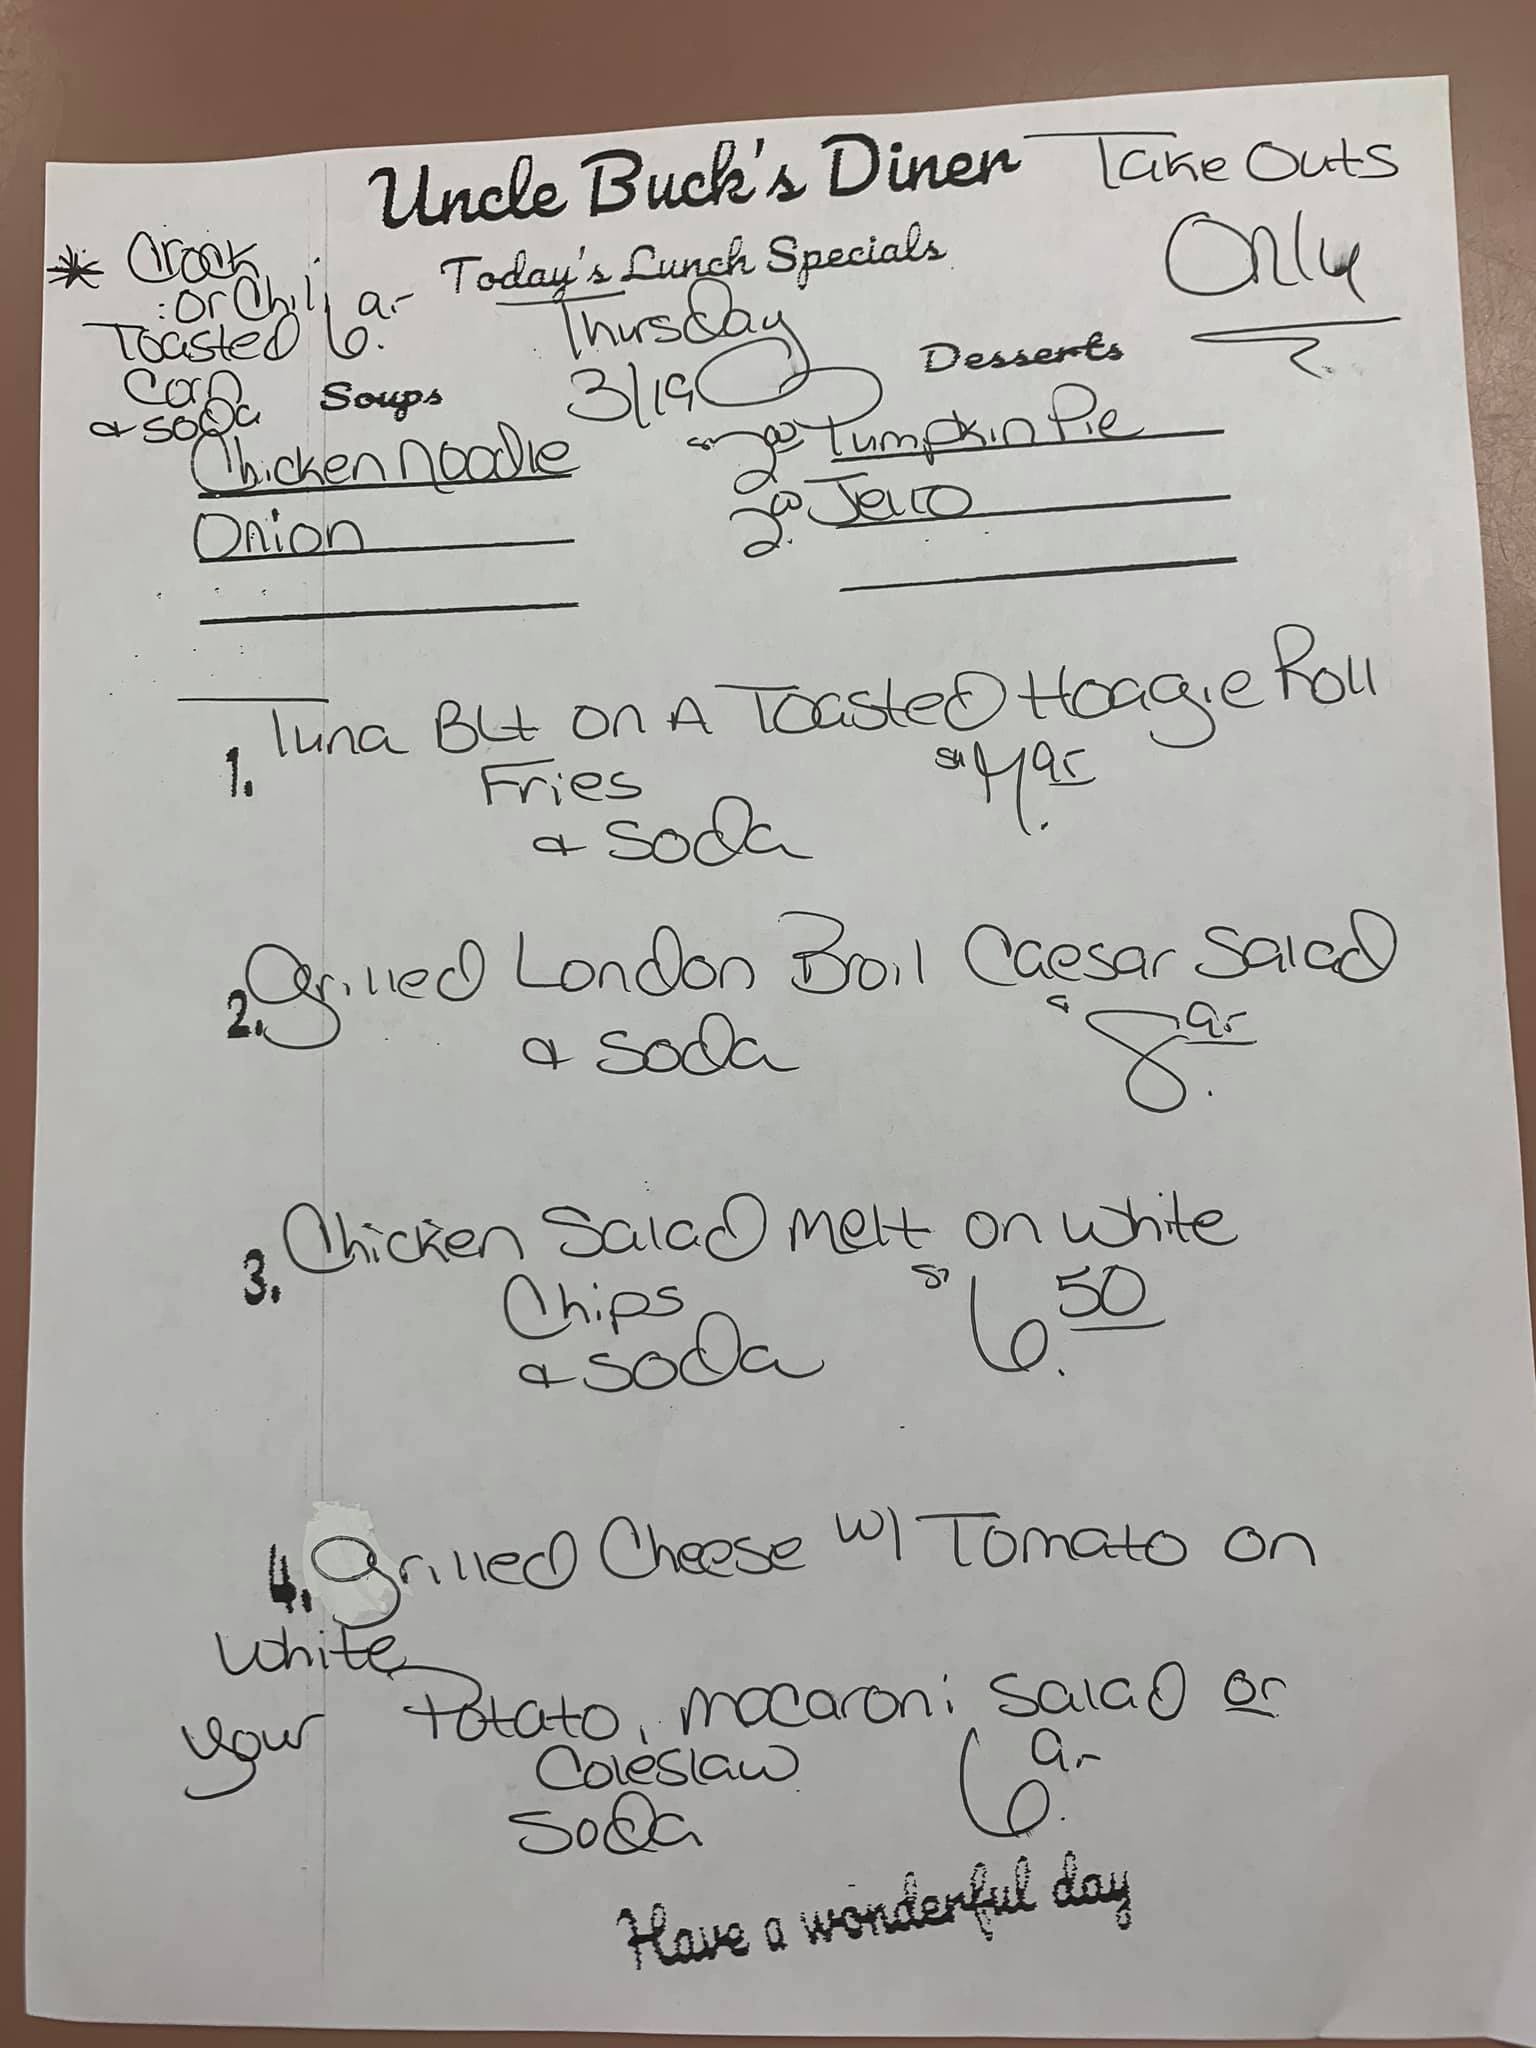 Uncle Buck's Diner
Take Outs
Only
Today's Lunch Specials
Thursday
3/19
* Crock
or Chili
Toasted 6.
Corn
& soda
Soups
Chicken Noodle
Onion
Desserts
2.00 Pumpkin Pie
2.00 Jello
1. Tuna Blt on A Toasted Hoagie Roll
Fries
& soda
2. Grilled London Broil Caesar Salad
& soda
8.
3. Chicken Salad melt on white
Chips 6.50
& soda
4. Grilled Cheese w/ Tomato on
white
your Potato, macaroni salad or
Coleslaw 6.
soda
Have a wonderful day